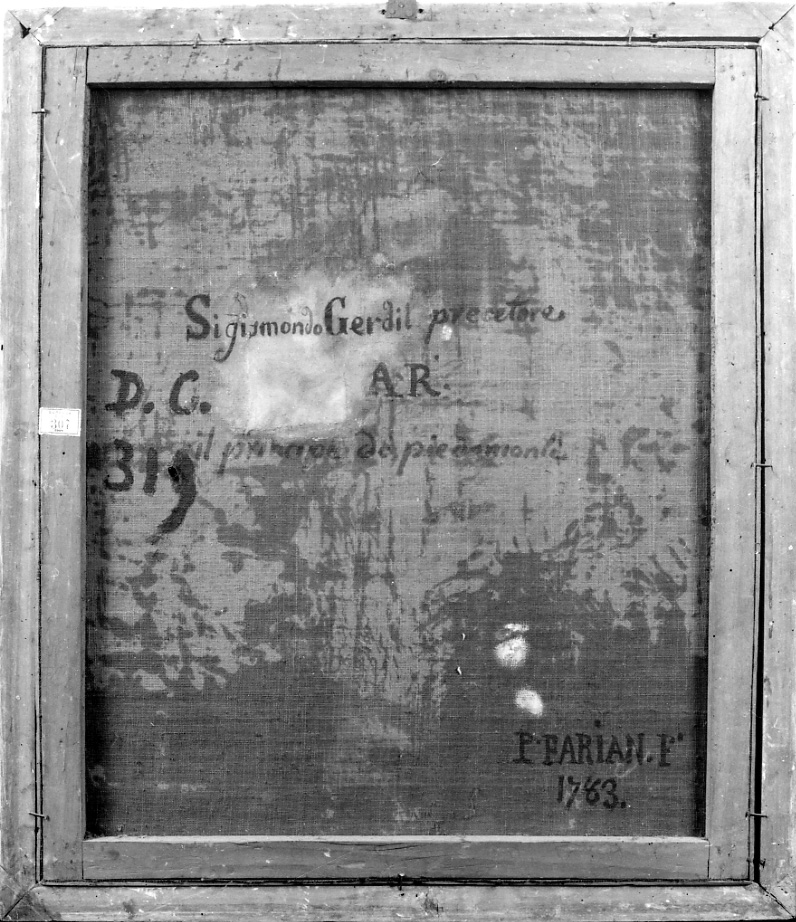 Sigismondo Gerdil precetore
D. C. A. R.
il principe de piedmonte
319
307
P. FARIAN. F.
1783.